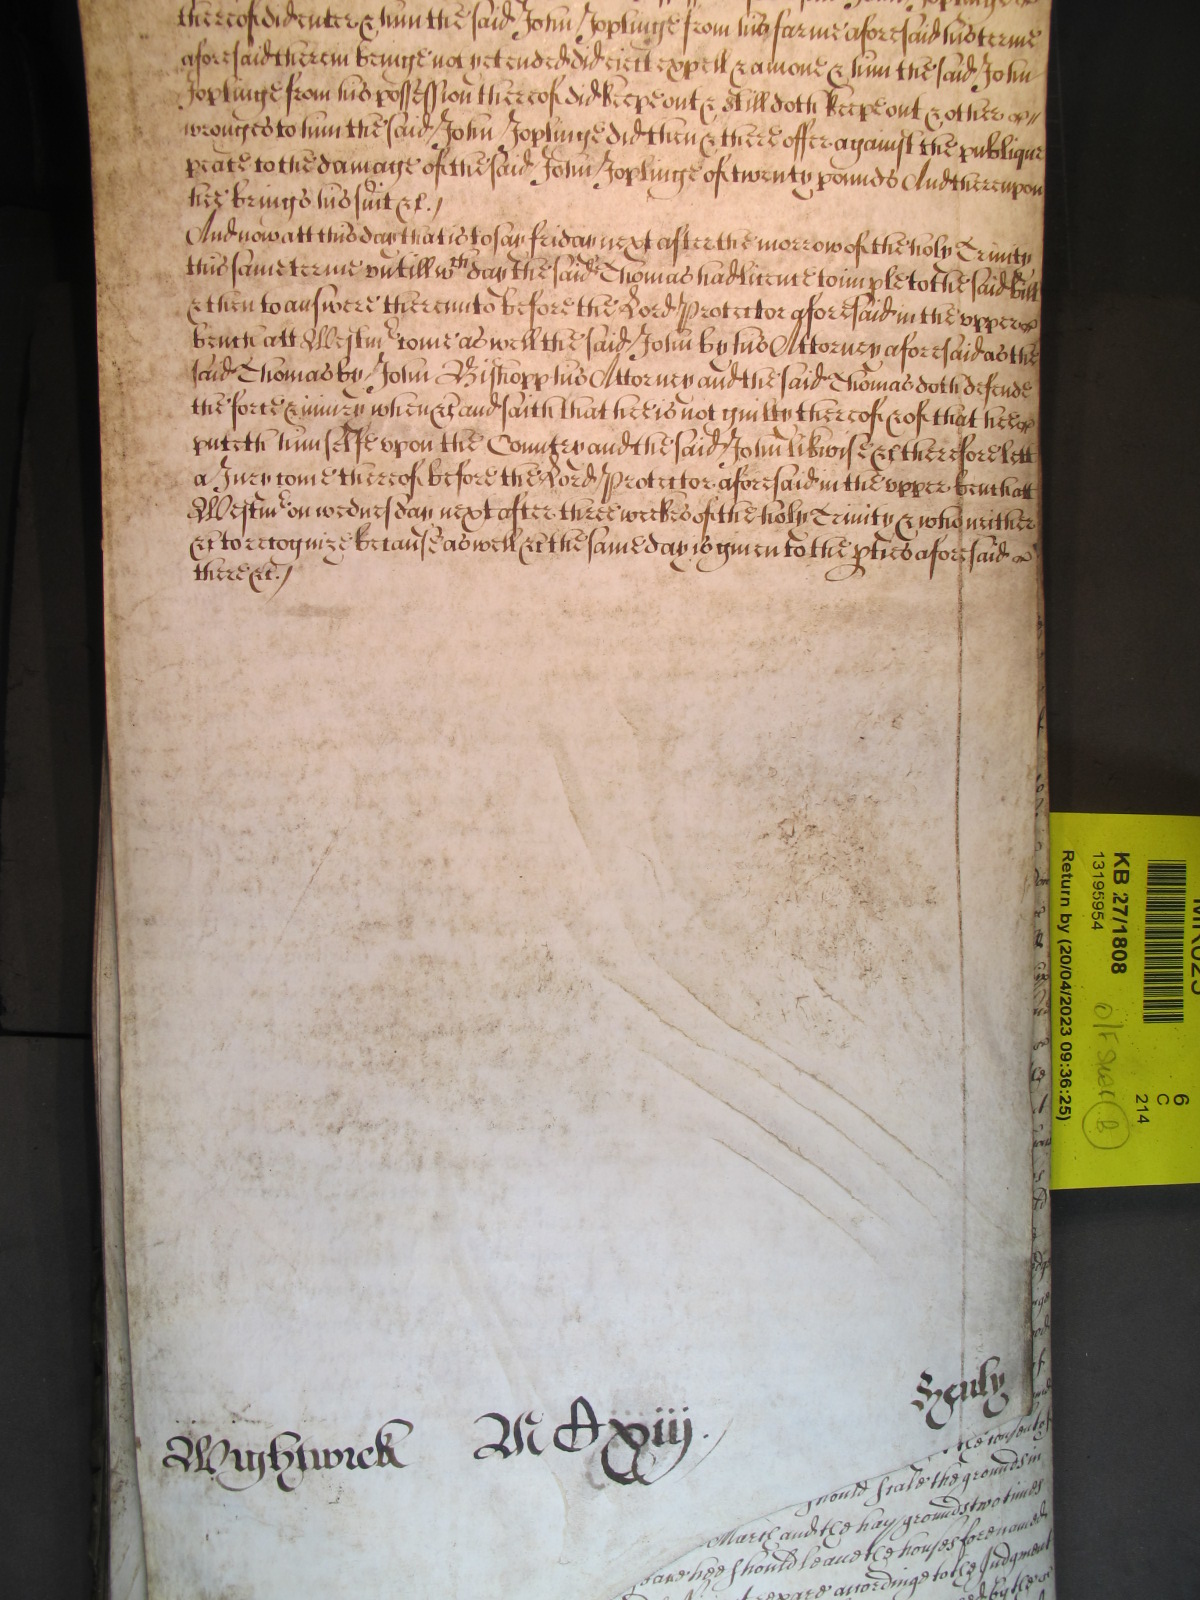 thereof did enter & him the said John Joplinge from his farme aforesaid his terme
aforesaid therein beinge not yet ended did eiect expell & amove & him the said John
Joplinge from his possession thereof did keepe out & still doth keepe out & other
wronges to him the said John Joplinge did then & there offer against the publique
peace to the damage of the said John Joplinge of twenty pounds And thereupon
hee brings his suit &c.
And now att this day that is to say friday next after the morrow of the holy Trinity
this same terme untill wch day the said Thomas had licence to imple to the said bill
& then to answere thereunto before the Lord Protector aforesaid in the upper
bench att Westmr come as well the said John by his Attorney aforesaid as the
said Thomas by John Bishopp his Attorney and the said Thomas doth defende
the force & iniury when &c and saith that hee is not guilty thereof & of that hee
putteth himselfe vpon the Country and the said John likwise &c therefore lett
a Jury come thereof before the Lord Protector aforesaid in the upper bench att
Westmr on wednesday next after three weekes of the holy Trinity & who neither
&c to recognize because as well &c the same day is given to the pties aforesaid
there &c.
Wightwick
xiij.
should scale the grounds in
March and the hay grounds two times
hee should leave the houses forenamed
repare accordinge to the Judgment
KB 27/1808
13195954
Return by (20/04/2023 09:36:25)
6
C
214